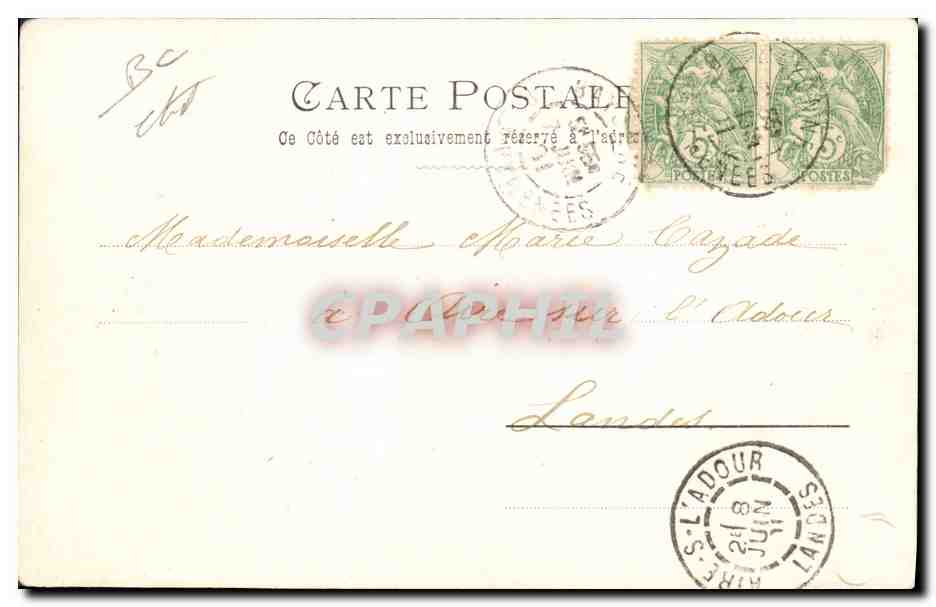 CARTE POSTALE
Ce Côté est exclusivement réservé à l'adresse
5c 5c
POSTES POSTES
Mademoiselle Marie Cazade
à Aire sur l'Adour
Landes
CPAPHIL
AIRE-S-L'ADOUR
2E
8
JUIN
11
LANDES